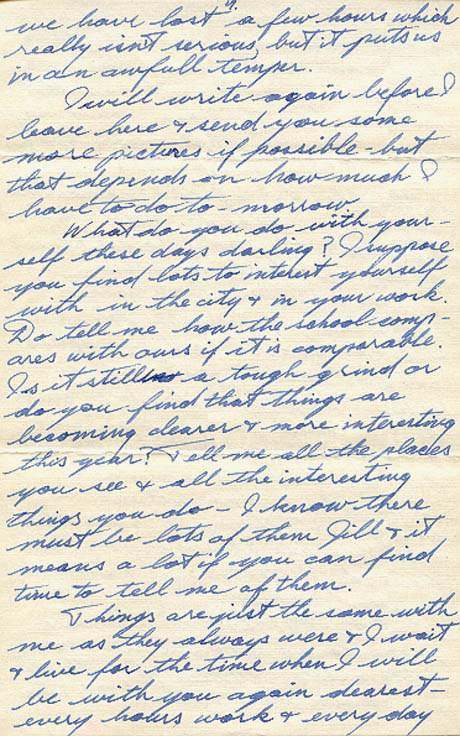 we have lost a few hours which
really isn't serious, but it puts us
in an awfull temper.
I will write again before I
leave here & send you some
more pictures if possible - but
that depends on how much I
have to do to - morrow
What do you do with your-
self these days darling? I suppose
you find lots to interest yourself
with in the city & in your work.
Do tell me how the school comp-
ares with ours if it is comparable.
Is it still a tough grind or
do you find that things are
becoming clearer & more interesting
this year? Tell me all the places
you see & all the interesting
things you do - I know there
must be lots of them Jill & it
means a lot if you can find
time to tell me of them.
Things are just the same with
me as they always were & I wait
& live for the time when I will
be with you again dearest -
every hours work & every day